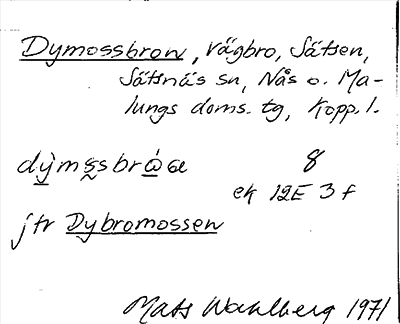 Dymossbron, vägbro, Sätsen,
Sätsnäs sn, Nås o. Ma-
lungs doms. tg, Kopp. l.
8
ek 12E 3 f
jfr Dybromossen
Mats Wahlberg 1971